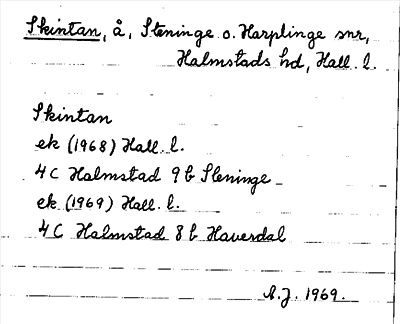 Skintan, å, Steninge o. Harplinge snr,
Halmstads hd, Hall. l.
Skintan
ek (1968) Hall. l.
4C Halmstad 9b Steninge
ek (1969) Hall. l.
4C Halmstad 8b Haverdal
A.J. 1969.